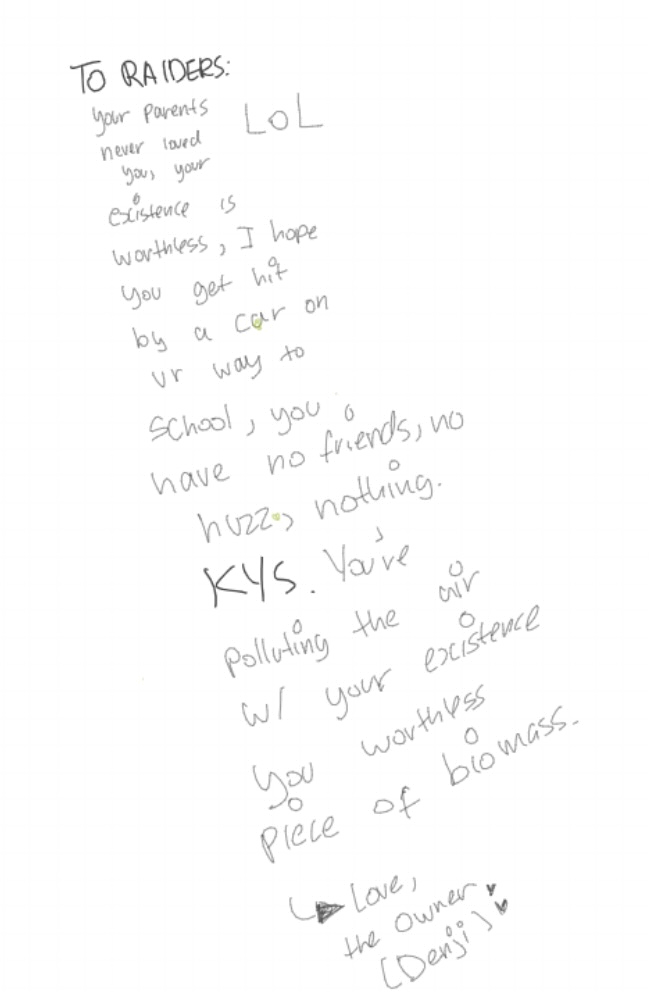 TO RAIDERS:
your parents LOL
never loved
you, your
existence is
worthless, I hope
you get hit
by a car on
ur way to
school, you
have no friends, no
huzz, nothing.
KYS. You're
polluting the air
w/ your existence
you worthless
piece of biomass.
Love,
the owner
(Denji)